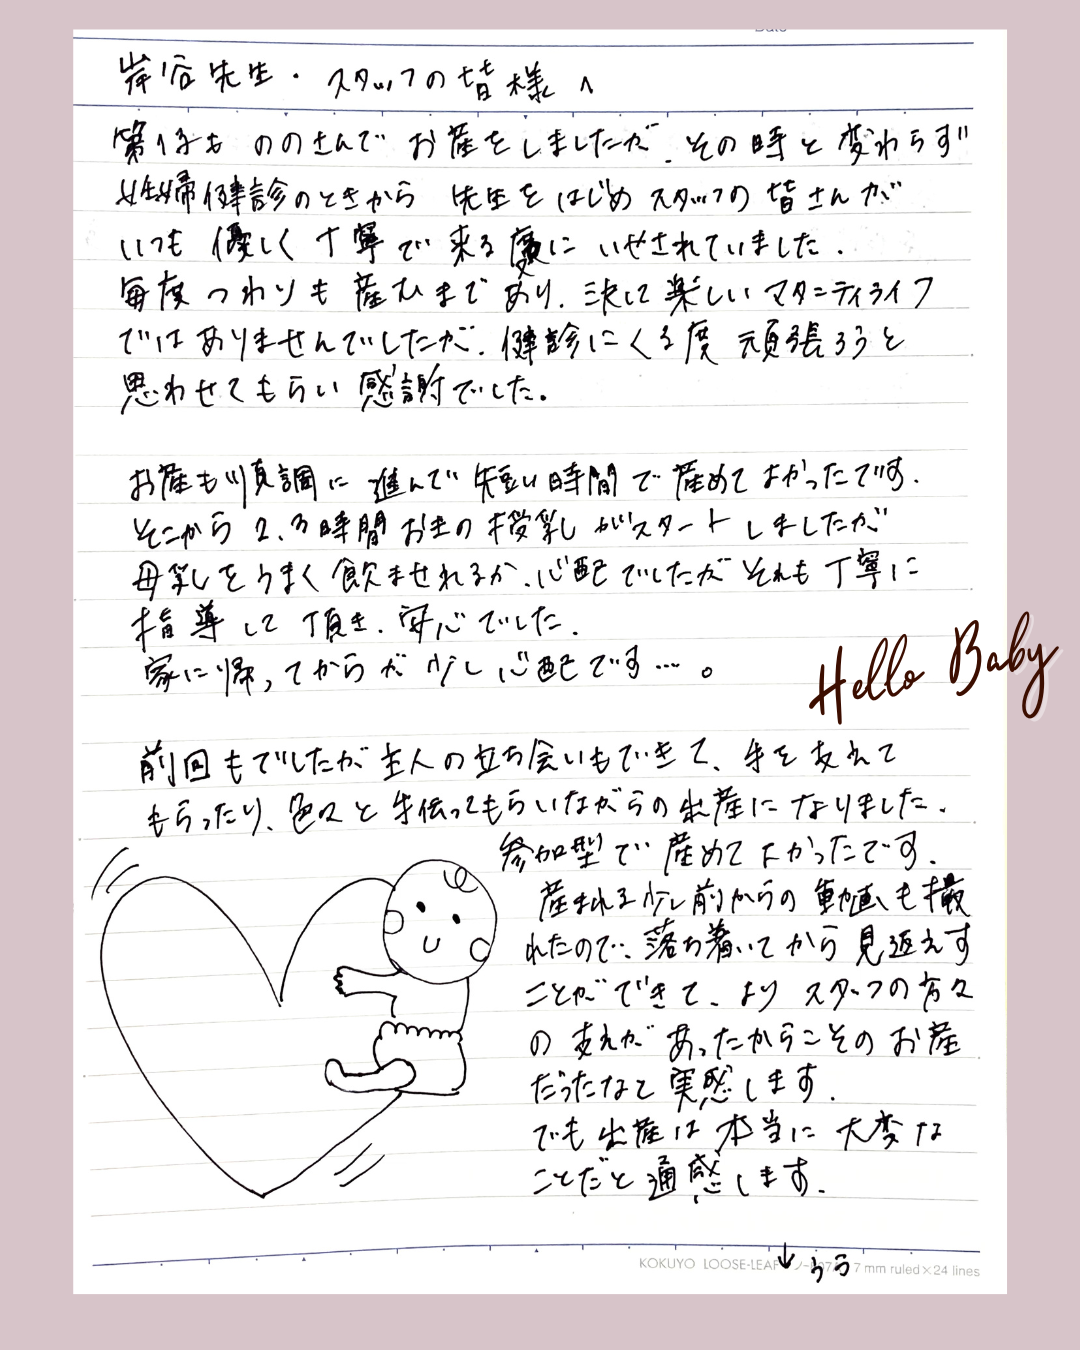 岸谷先生・スタッフの皆様へ
第1子も ののさんで お産をしましたが、その時と変わらず
妊婦健診のときから 先生をはじめスタッフの皆さんが
いつも 優しく丁寧で来る度に いやされていました.
毎度つわりも産ひまであり、決して楽しいマタニティライフ
ではありませんでしたが、健診にくる度 頑張ろうと
思わせてもらい感謝でした。
お産も順調に進んで短い時間で産めてよかったです.
そこから2.3時間おきの授乳がスタートしましたが
母乳をうまく飲ませれるか、心配でしたがそれも丁寧に
指導して頂き、安心でした.
家に帰ってからが少し心配です…。
Hello Baby
前回もでしたが主人の立ち会いもできて、手をあれて
もらったり、色々と手伝ってもらいながらの出産になりました.
参加型で産めてよかったです.
産まれる少し前からの動画も撮
れたので、落ち着いてから見返えす
ことができて、より スタッフの方々
の支えが あったからこそのお産
だったなと実感します.
でも出産は本当に大変な
ことだと痛感します.
KOKUYO LOOSE-LEAF 7 mm ruled×24 lines
↓うら